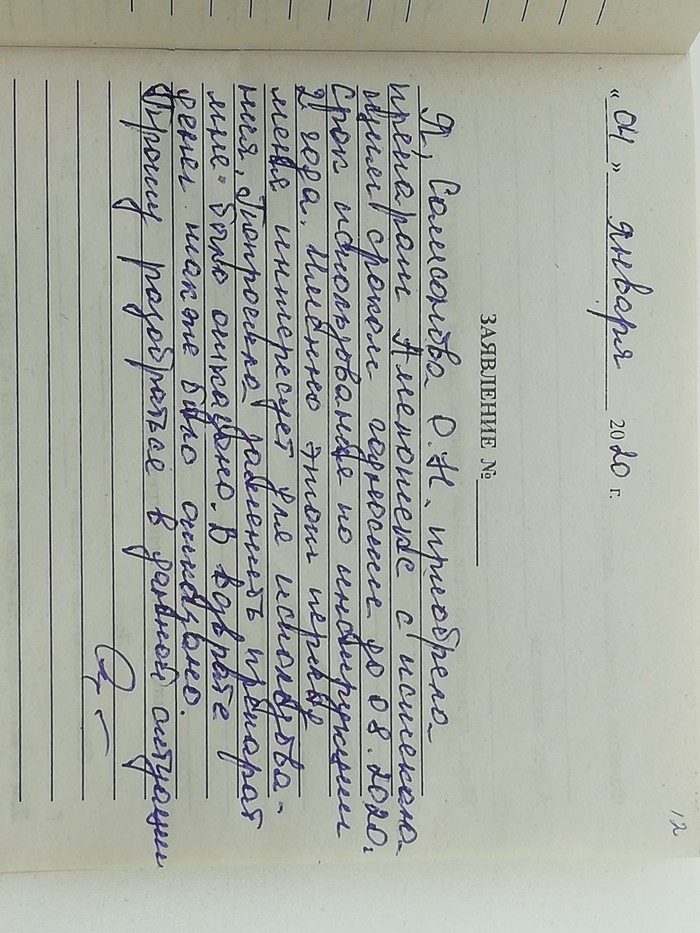 12
« 04 » января 2020 г.
ЗАЯВЛЕНИЕ № 
Я, Самсонова О.Н. приобрела
препарат с истекаю-
щим сроком годности до 08.2020.
срок использования по инструкции
2 года. Именно этот период
меня интересует для использова-
ния. Попросила заменить препарат
мне было отказано. В возврате
денег также было отказано.
Прошу разобраться в данной ситуации